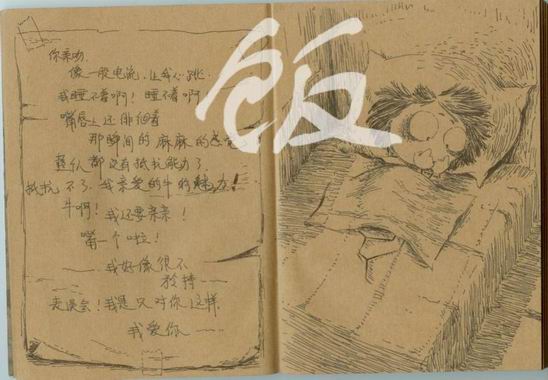 饭
你亲吻
像一股电流,让我心跳
我睡不着啊!睡不着啊
嘴唇上还徘徊着
那瞬间的麻麻的感
都没有抵抗能力了.
抵抗不了.我亲爱的牛的魅力!
牛啊!
我还要亲亲!
嘴一个啦!
我好像很不
矜持——
表误会!我是只对你这样
我爱你——